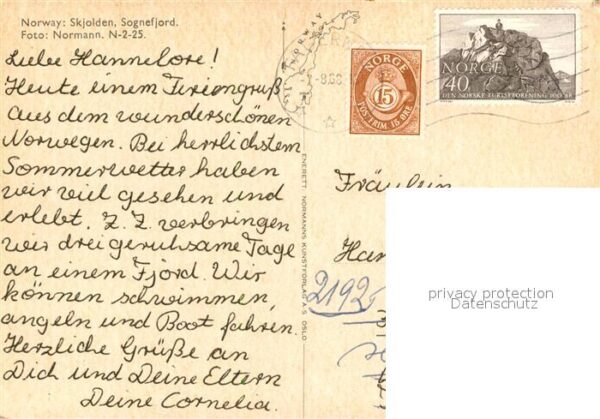 Norway: Skjolden, Sognefjord.
Foto: Normann. N-2-25.
Liebe Hannelore!
Heute einem Feriengruß
aus dem wunderschönen
Norwegen. Bei herrlichstem
Sommerwetter haben
wir viel gesehen und
erlebt. Z. Z. verbringen
wir drei geruhsame Tage
an einem Fjord. Wir
können schwimmen,
angeln und Boot fahren.
Herzliche Grüße an
Dich und Deine Eltern
Deine Cornelia.
ENERETT: NORMANNS KUNSTFORLAG A.S. OSLO
NORWAY
NORGE
15
POSTFRIM. 15 ØRE
NORGE
40
DEN NORSKE TURISTFORENING 100 ÅR
Fräulein
Han
2192
privacy protection
Datenschutz